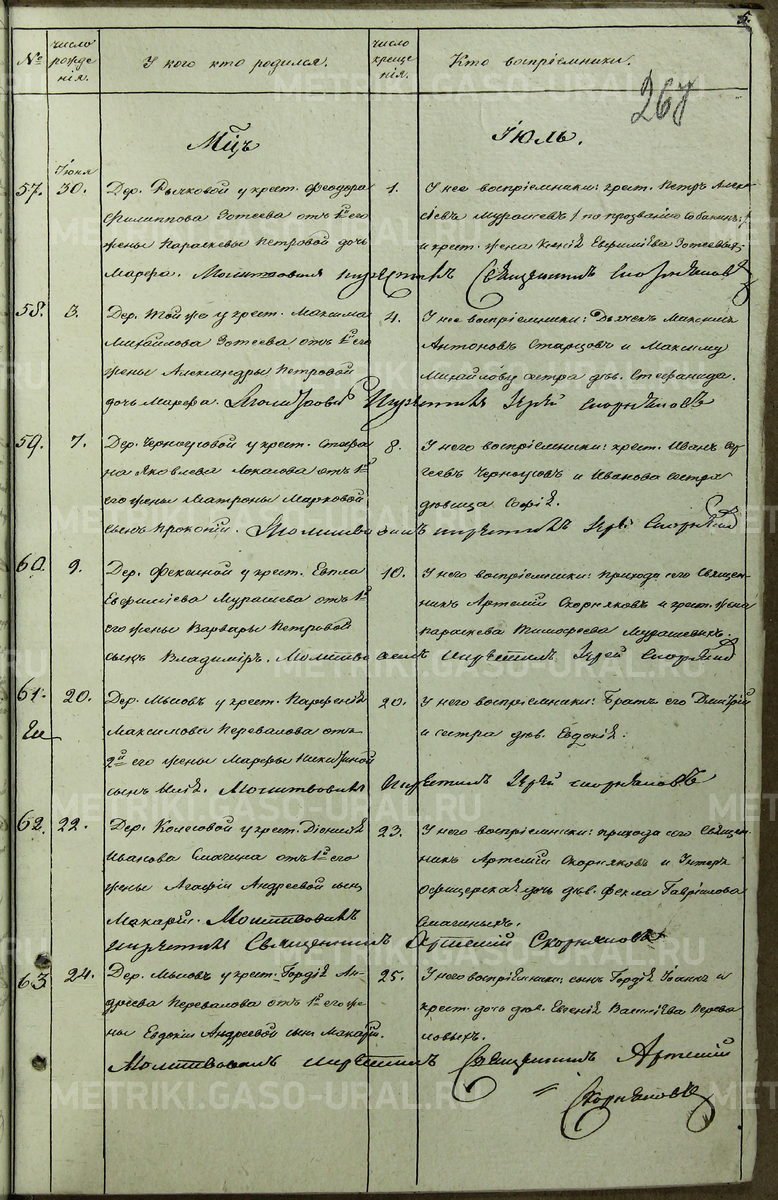 5.
№
число рожденія.
У кого кто родился.
число крещенія.
Кто воспріемники.
267
Мцъ
Іюль.
57.
Іюня 30.
Дер. Рычковой у крест. Феодора
Филиппова Зотеева отъ 1й его
жены Параскевы Петровой дочь
Марѳа. Молитвовалъ и крестилъ Священникъ Скорняковъ
1.
У нее воспріемники: крест. Петръ Алек-
сіевъ Мурашевъ / по прозванію Собакинъ /
и крест. жена Ксенія Евфиміева Зотеевыхъ
58.
3.
Дер. Той же у крест. Максима
Михайлова Зотеева отъ 1й его
жены Александры Петровой
дочь Марѳа. Молитвовалъ и крестилъ Іерей Скорняковъ
4.
У нее воспріемники: Дьячекъ Максимъ
Антоновъ Старцовъ и Максиму
Михайлову сестра дѣв. Стефанида.
59.
7.
Дер. Черноусовой у крест. Стефа-
на Яковлева отъ 1й
его жены Матроны Марковой
сынъ Прокопій. Молитвовалъ и крестилъ Іерей Скорняковъ
8.
У него воспріемники: крест. Иванъ Сер-
геевъ Черноусовъ и Иванова сестра
дѣвица Софія.
60.
9.
Дер. Феклиной у крест. Евпла
Евфиміева Мурашева отъ 1й
его жены Варвары Петровой
сынъ Владиміръ. Молитвовалъ и крестилъ Іерей Скорняковъ
10.
У него воспріемники: прихода сего Священ-
никъ Артемій Скорняковъ и крест. жена
Параскева Тимофеева Мурашевыхъ.
61.
20.
Дер. Мысовъ у крест. Парфенія
Максимова Перевалова отъ
2й его жены Марѳы Никитиной
сынъ Илія. Молитвовалъ и крестилъ Іерей Скорняковъ
20.
У него воспріемники: Братъ его Дмитрій
и сестра дѣв. Евдокія.
62.
22.
Дер. Колесовой у крест. Діонисія
Иванова Смагина отъ 1й его
жены Агафіи Андреевой сынъ
Макарій. Молитвовалъ
и крестилъ Священникъ Артемій Скорняковъ
23.
У него воспріемники: прихода сего Священ-
никъ Артемій Скорняковъ и Унтеръ
Офицерская дочь дѣв. Фекла Гавріилова
Смагиныхъ.
63
24.
Дер. Мысовъ у крест. Гордія Ан-
дреева Перевалова отъ 1й его же-
ны Евдокіи Андреевой сынъ Макарій.
Молитвовалъ и крестилъ Священникъ Артемій
Скорняковъ
25.
У него воспріемники: сынъ Гордія Іоаннъ и
крест. дочь дѣв. Евгенія Васильева Перева-
ловыхъ.
METRIKI.GASO-URAL.RU